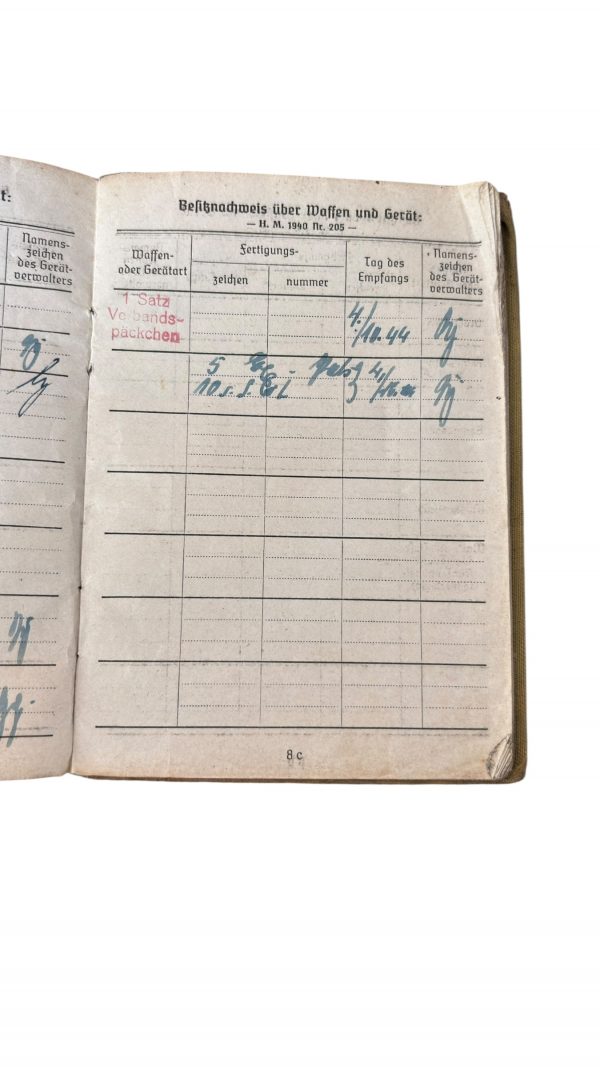 t:
Namens-
zeichen
des Gerät-
verwalters
Besitznachweis über Waffen und Gerät:
— H. M. 1940 Nr. 205 —
Waffen-
oder Gerätart
Fertigungs-
zeichen
nummer
Tag des
Empfangs
Namens-
zeichen
des Gerät-
verwalters
1 Satz
Verbands-
päckchen
4./
10.44
5
10
8 c